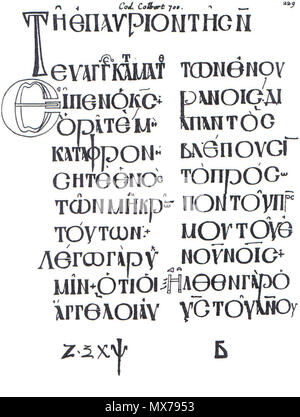 Cod. Colbert 700. 229
ΤΗ ΕΠΑΥΡΙΟΝ ΤΗC Ν
ΕΥΑΓΓ ΚΑ ΜΑΤ
ΕΙΠΕΝ Ο ΚC·
ΟΡΑΤΕ Μ
ΚΑΤΑΦΡΟΝ
CΗΤΕ ΕΝΟC
ΤΩΝ ΜΗΚΡω
ΤΟΥΤΩΝ·
ΛΕΓΩ ΓΑΡ Υ
ΜΙΝ· ΟΤΙ ΟΙ
ΑΓΓΕΛΟΙ ΑΥ
ΤΩΝ ΕΝ ΟΥ
ΡΑΝΟΙC ΔΙ
ΑΠΑΝΤΟC
ΒΛΕΠΟΥCΙ
ΤΟ ΠΡΟCω
ΠΟΝ ΤΟΥ ΠΡC
ΜΟΥ ΤΟΥ Ε
ΝΟΥΝΟΙC·
ΗΛΘΕΝ ΓΑΡ Ο
ΥC ΤΟΥ ΑΝΟΥ
Ζ·ΣΧΨ Б
alamy stock photo
MX7953